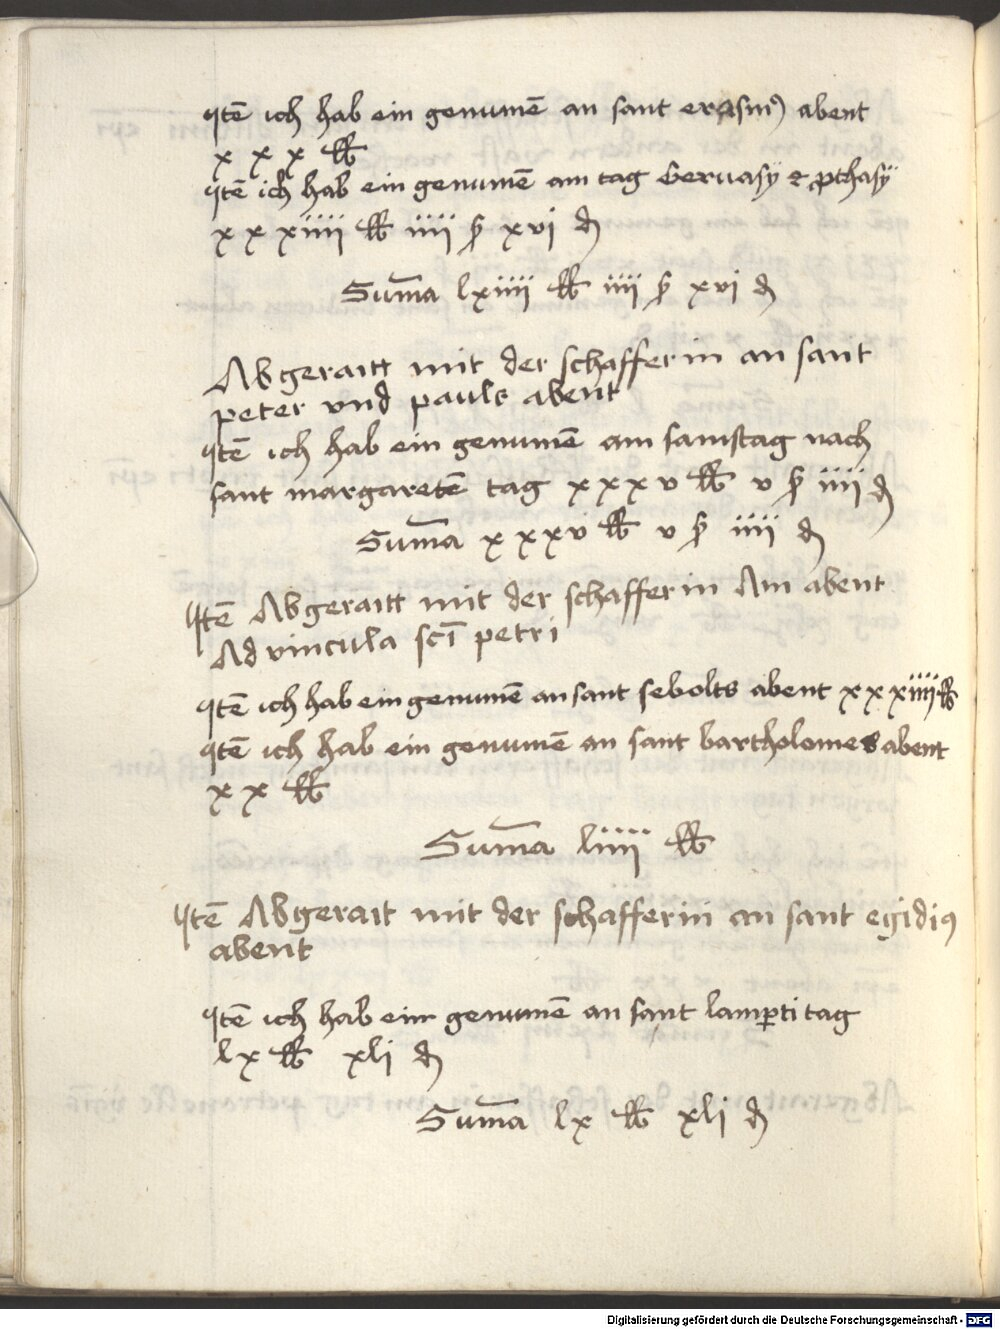 Itē ich hab ein genumē an sant erasmꝰ abent
x x x lb
Itē ich hab ein genumē am tag Geruasÿ et ꝓthasÿ
x x xiiii lb iiii ß xvi ₰
Suma lxiiii lb iiii ß xvi ₰
Abgeraitt mit der schafferin an sant
peter vnd pauls abent
Itē ich hab ein genumē am samstag nach
sant margaretē tag x x x v lb v ß iiii ₰
Suma x x x v lb v ß iiii ₰
Itē Abgeraitt mit der schafferin Am abent
Ad vincula sci̅ petri
Itē ich hab ein genumē an sant sebolts abent x x xiiii lb
Itē ich hab ein genumē an sant bartholomes abent
x x lb
Suma liiii lb
Itē Abgerait mit der schafferin an sant egidiꝰ
abent
Itē ich hab ein genumē an sant lamꝑti tag
lx lb xli ₰
Suma lx lb xli ₰
Digitalisierung gefördert durch die Deutsche Forschungsgemeinschaft - DFG